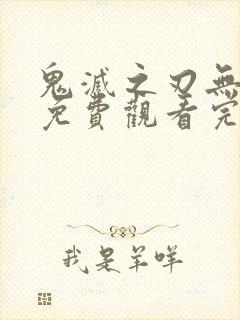 鬼滅之刃無
免費觀看完
我是羊咩